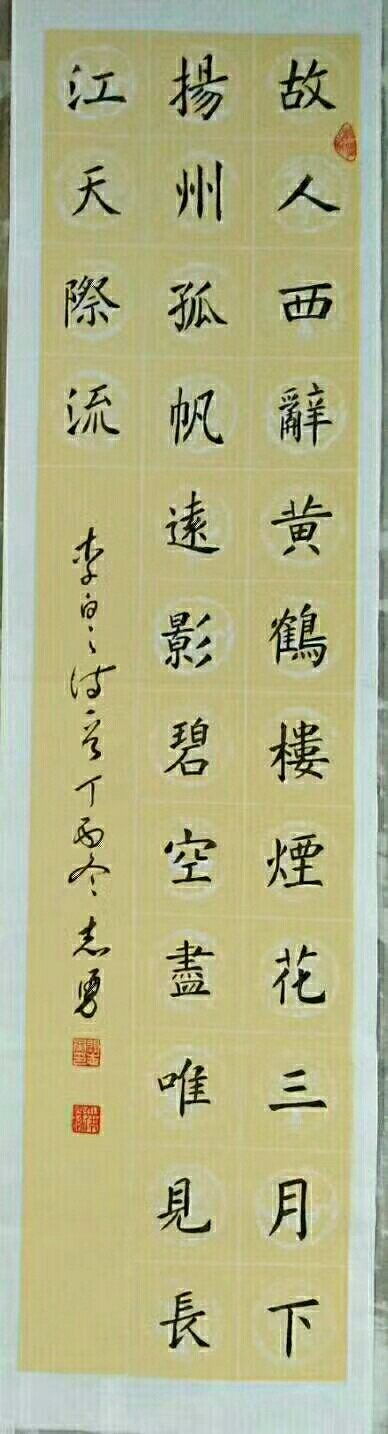 故人西辭黄鶴樓煙花三月下
揚州孤帆遠影碧空盡唯見長
江天際流
李白之诗一首丁酉冬志勇